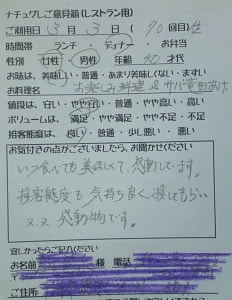 ナチュグしご意見箱(レストラン用)
ご利用日 3 月 3 日 ( 70 回目)位
時間帯 ランチ ・ ディナー ・ お弁当
性別 女性 ・ 男性 年齢 30 才代
お味は、美味しい・普通・あまり美味しくない・まずい
お料理名 お楽しみ料理 & サバ竜田あげ
値段は、安い・やや安い・普通・やや高い・高い
ボリュームは、満足・やや満足・普通・やや不満・不満
接客態度は、良い・普通・少し悪い・悪い
お気付きの点がございましたら、お聞かせください
いつ食べても美味しくて、感動しています。
接客態度も気持ち良く接してもらい
又々感動物です。
宜しかったらご記入ください
お名前 様 電話
ご住所